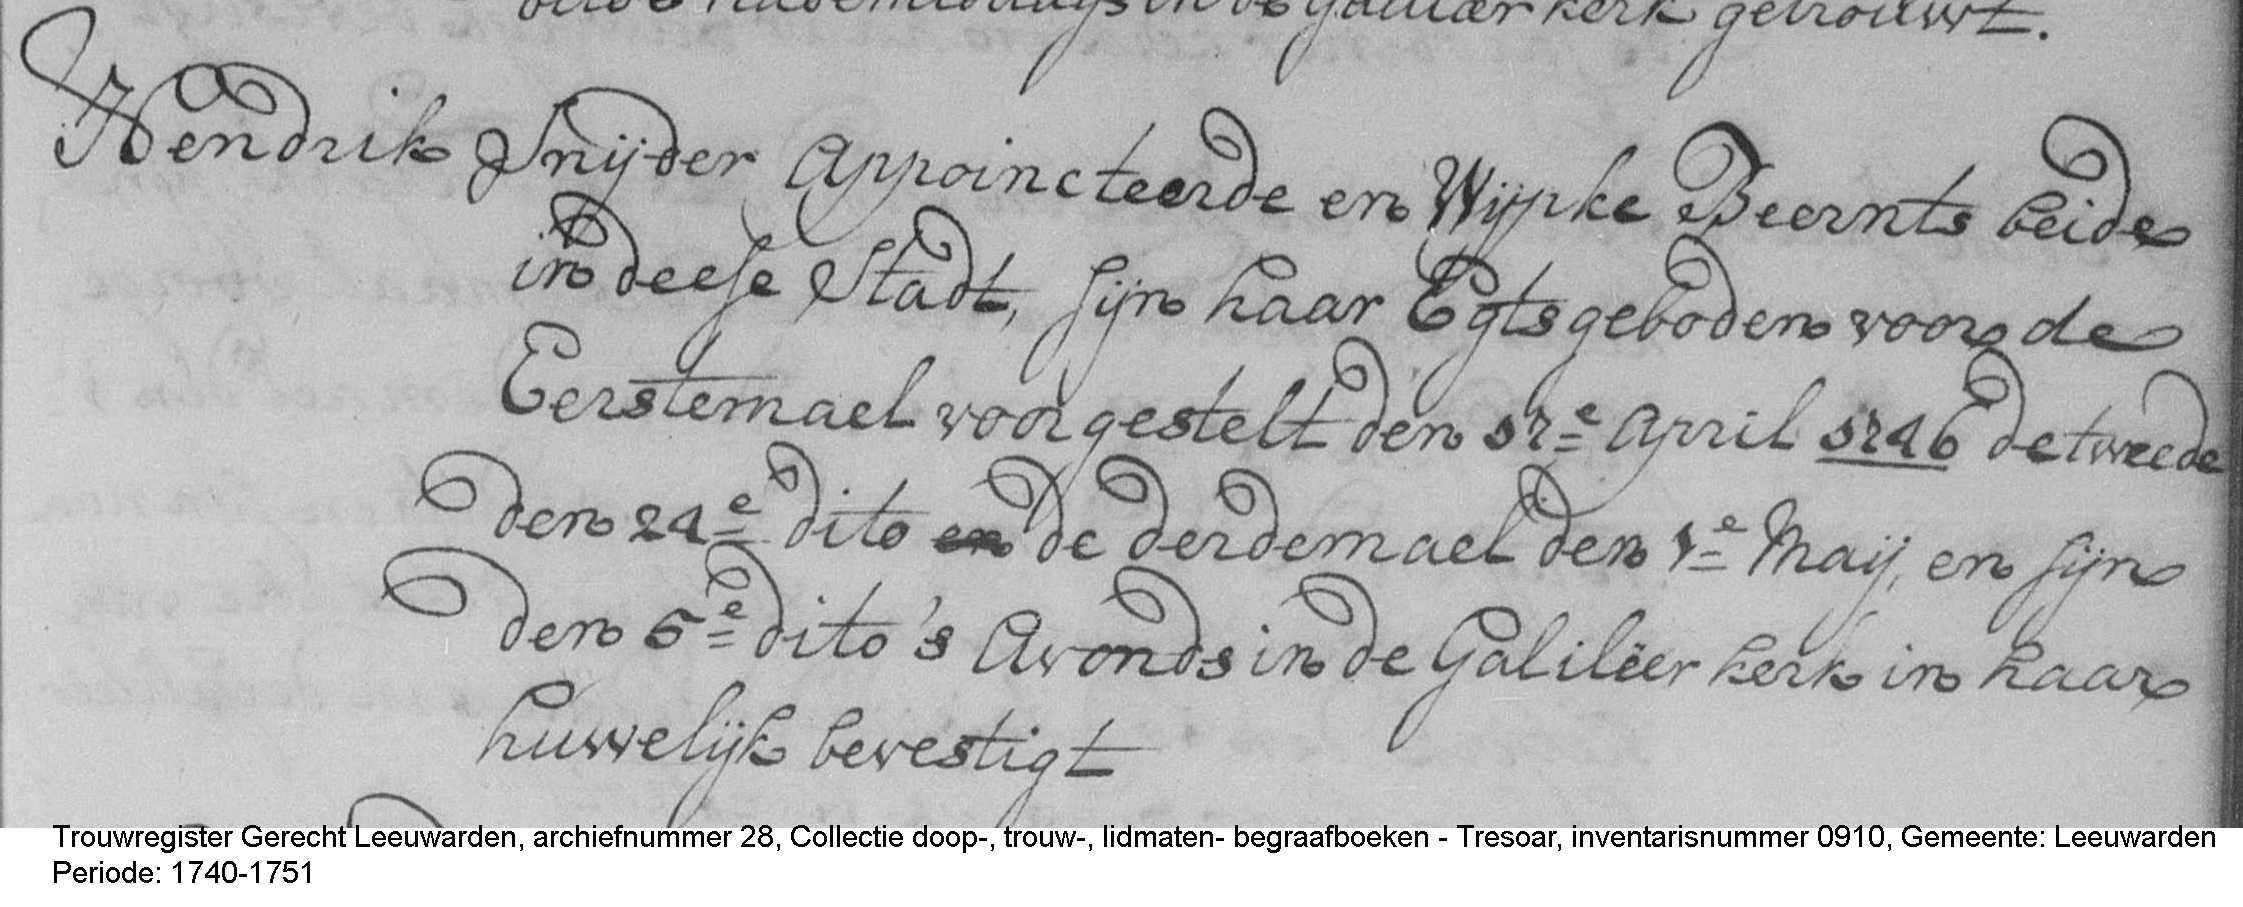 ditos nademiddags in de Galileer kerk getrouwt.
Hendrik Snijder Appoincteerde en Wijpke Beernts beide
in deese Stadt, sijn haar Egts geboden voor de
Eerstemael voorgestelt den 17e April 1746 de tweede
den 24e dito en de derdemael den 1e Maij, en sijn
den 6e dito 's Avonds in de Galilëer kerk in haar
huwelijk bevestigt
Trouwregister Gerecht Leeuwarden, archiefnummer 28, Collectie doop-, trouw-, lidmaten- begraafboeken - Tresoar, inventarisnummer 0910, Gemeente: Leeuwarden
Periode: 1740-1751